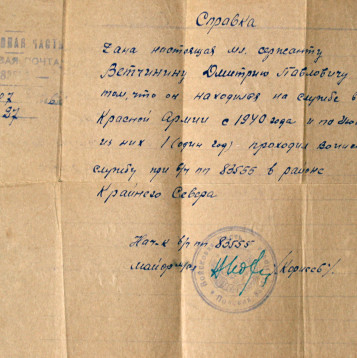 Справка
ВАЯ ЧАСТЬ
ВАЯ ПОЧТА
Дана настоящая мл. сержанту
Ветчинину Дмитрию Павловичу
том, что он находился на службе
Красной Армии с 1940 года и по
из них 1 (один год) проходил
службу при в/ч пп 83555 в районе
Крайнего Севера
27
Нач-к в/ч пп 83555
майор